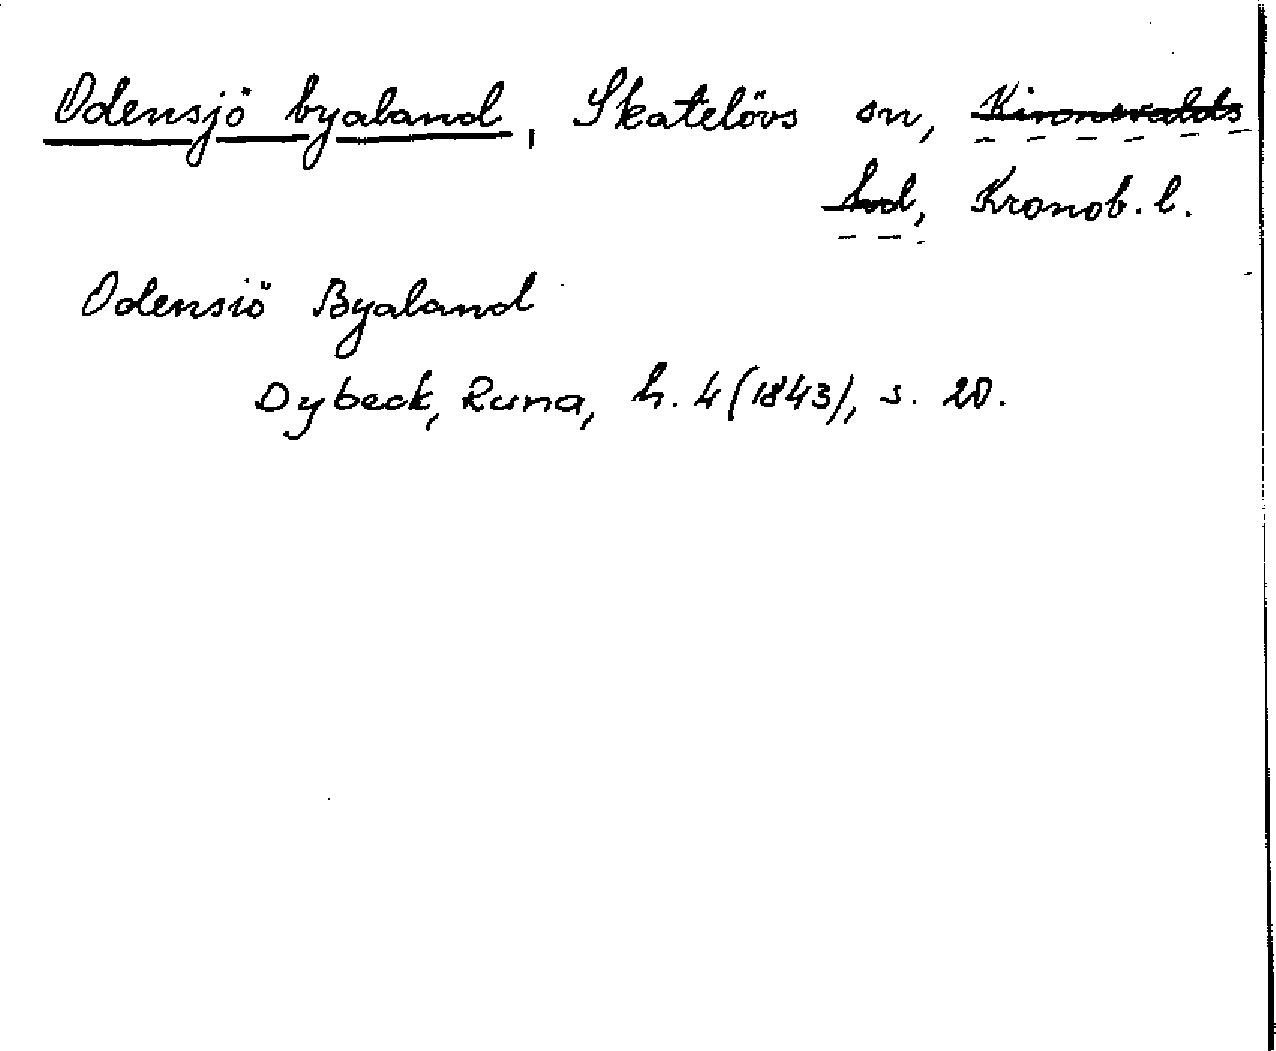 Odensjö byaland, Skatelövs sn, Kinnevalds
hd, Kronob. l.
Odensiö Byaland
Dybeck, Runa, h. 4 (1843), s. 20.